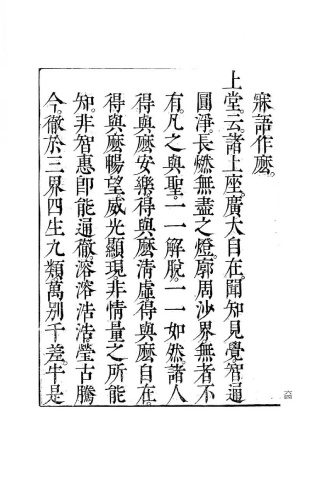 寐語作麼。
上堂。云。諸上座。廣大自在。聞知見覺。智通
圓淨。長燃無盡之燈。廓周沙界。無者不
有。凡之與聖。一一解脫。一一如然。諸人
得與麼安樂。得與麼清虛。得與麼自在。
得與麼暢望。威光顯現。非情量之所能
知。非智惠卽能通徹。溶溶浩浩。瑩古騰
今。徹於三界四生九類。萬別千差。牛是
六四